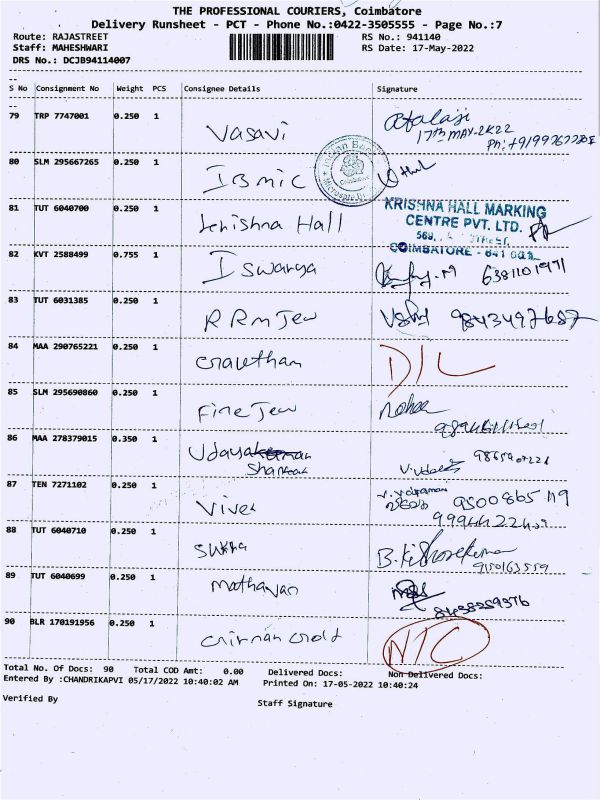 THE PROFESSIONAL COURIERS, Coimbatore
Delivery Runsheet - PCT - Phone No.:0422-3505555 - Page No.:7
Route: RAJASTREET RS No.: 941140
Staff: MAHESHWARI RS Date: 17-May-2022
DRS No.: DCJB94114007
S No Consignment No Weight PCS Consignee Details Signature
79 TRP 7747001 0.250 1 Vasavi
17th MAY-2K22
80 SLM 295667265 0.250 1 IBMIC
Indian Bank
81 TUT 6040700 0.250 1 krishna Hall
KRISHNA HALL MARKING
CENTRE PVT. LTD.
569,
COIMBATORE - 641 001.
82 KVT 2588499 0.755 1 Iswarya 6381101971
83 TUT 6031385 0.250 1 RRM Jew 9843497687
84 MAA 290765221 0.250 1 D/L
85 SLM 295690860 0.250 1 Fine Jew
86 MAA 278379015 0.350 1 Udaya
87 TEN 7271102 0.250 1 Vivek
88 TUT 6040710 0.250 1 B. Kishorekumar
9150163559
89 TUT 6040699 0.250 1 Mathavan
8438259376
90 BLR 170191956 0.250 1 NTC
Total No. Of Docs: 90 Total COD Amt: 0.00 Delivered Docs: Non Delivered Docs:
Entered By :CHANDRIKAPVI 05/17/2022 10:40:02 AM Printed On: 17-05-2022 10:40:24
Verified By Staff Signature